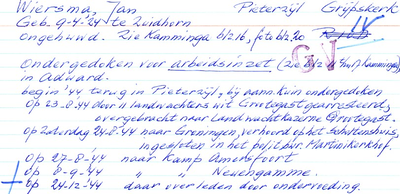 Wiersma, Jan Pieterzijl Grijpskerk
Geb. 9-4-'24 te Zuidhorn
ongehuwd. Zie Kamminga blz 16, foto blz. 20
GV
Ondergedoken voor arbeidsinzet (zie blz Kamminga)
in Adward.
begin '44 terug in Pieterzijl, bij aann. kuin ondergedoken
Op 23-8-44 door 'n landwachters uit Grootegast gearresteerd,
overgebracht naar Landwachtkazerne Grootegast.
Op Zaterdag 24-8-44 naar Groningen, verhoord op het Scholtenshuis,
ingesloten in het polit. bur. Martinikerkhof.
Op 27-8-44 naar Kamp Amersfoort
Op 8-9-44 " " Neuengamme.
Op 24-12-44 daar overleden door ondervoeding.